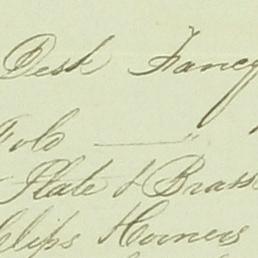 Desk Fancy
Folo — "
Plate & Brass
Clips Horners